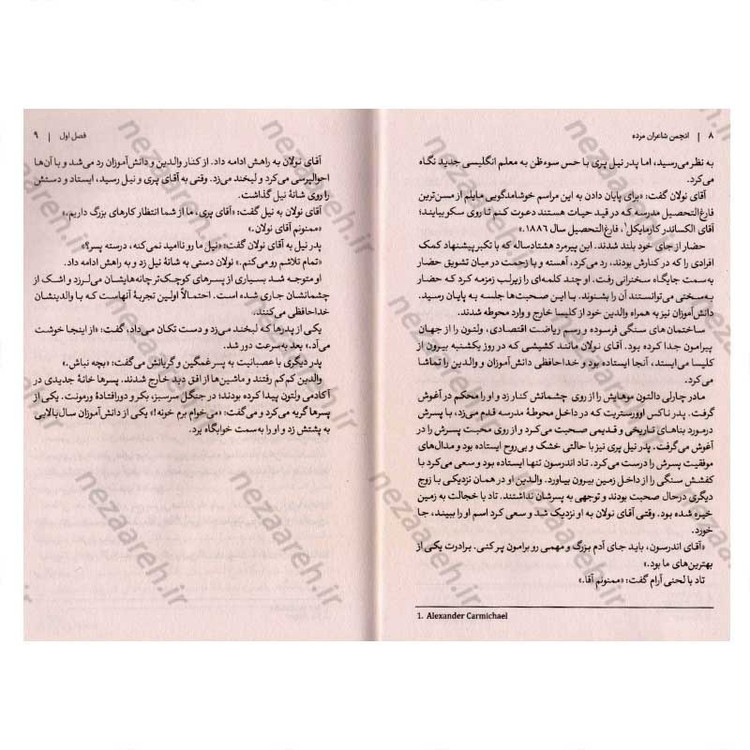 ۸ | انجمن شاعران مرده
به نظر می‌رسید، اما پدر نیل پری با حس سوءظن به معلم انگلیسی جدید نگاه
می‌کرد.
آقای نولان گفت: «برای پایان دادن به این مراسم خوشامدگویی مایلم از مسن‌ترین
فارغ‌التحصیل مدرسه که در قید حیات هستند دعوت کنم تا روی سکو بیایند؛
آقای الکساندر کارمایکل۱، فارغ‌التحصیل سال ۱۸۸۶.»
حضار از جای خود بلند شدند. این پیرمرد هشتادساله که با تکبر پیشنهاد کمک
افرادی را که در کنارش بودند، رد می‌کرد، آهسته و با زحمت در میان تشویق حضار
به‌سمت جایگاه سخنرانی رفت. او چند کلمه‌ای را زیرلب زمزمه کرد که حضار
به‌سختی می‌توانستند آن را بشنوند. با این صحبت‌ها جلسه به پایان رسید.
دانش‌آموزان نیز به همراه والدین خود از کلیسا خارج و وارد محوطه شدند.
ساختمان‌های سنگی فرسوده و رسم ریاضت اقتصادی، ولتون را از جهان
پیرامون جدا کرده بود. آقای نولان مانند کشیشی که در روز یکشنبه بیرون از
کلیسا می‌ایستد، آنجا ایستاده بود و خداحافظی دانش‌آموزان و والدین را تماشا
می‌کرد.
مادر چارلی دالتون موهایش را از روی چشمانش کنار زد و او را محکم در آغوش
گرفت. پدر ناکس اوورستریت که در داخل محوطهٔ مدرسه قدم می‌زد، با پسرش
درمورد بناهای تاریخی و قدیمی صحبت می‌کرد و از روی محبت پسرش را در
آغوش می‌گرفت. پدر نیل پری نیز با حالتی خشک و بی‌روح ایستاده بود و مدال‌های
موفقیت پسرش را درست می‌کرد. تاد اندرسون تنها ایستاده بود و سعی می‌کرد با
کفشش سنگی را از داخل زمین بیرون بیاورد. والدین او در همان نزدیکی با زوج
دیگری درحال صحبت بودند و توجهی به پسرشان نداشتند. تاد با خجالت به زمین
خیره شده بود. وقتی آقای نولان به او نزدیک شد و سعی کرد اسم او را ببیند، جا
خورد.
«آقای اندرسون، باید جای آدم بزرگ و مهمی رو برامون پر کنی. برادرت یکی از
بهترین‌های ما بود.»
تاد با لحنی آرام گفت: «ممنونم آقا.»
1. Alexander Carmichael
فصل اول | ۹
آقای نولان به راهش ادامه داد. از کنار والدین و دانش‌آموزان رد می‌شد و با آن‌ها
احوالپرسی می‌کرد و لبخند می‌زد. وقتی به آقای پری و نیل رسید، ایستاد و دستش
را روی شانهٔ نیل گذاشت.
آقای نولان به نیل گفت: «آقای پری، ما از شما انتظار کارهای بزرگ داریم.»
«ممنونم آقای نولان.»
پدر نیل به آقای نولان گفت: «نیل ما رو ناامید نمی‌کنه، درسته پسر؟»
«تمام تلاشم رو می‌کنم.» نولان دستی به شانهٔ نیل زد و به راهش ادامه داد.
او متوجه شد بسیاری از پسرهای کوچک‌تر چانه‌هایشان می‌لرزد و اشک از
چشمانشان جاری شده است. احتمالاً اولین تجربهٔ آنهاست که با والدینشان
خداحافظی می‌کنند.
یکی از پدرها که لبخند می‌زد و دست تکان می‌داد، گفت: «از اینجا خوشت
می‌آد.» بعد به‌سرعت دور شد.
پدر دیگری با عصبانیت به پسر غمگین و گریانش می‌گفت: «بچه نباش.»
والدین کم‌کم رفتند و ماشین‌ها از افق دید خارج شدند. پسرها خانهٔ جدیدی در
آکادمی ولتون پیدا کرده بودند؛ در جنگل سرسبز، بکر و دورافتادهٔ ورمونت. یکی از
پسرها گریه می‌کرد و می‌گفت: «می‌خوام برم خونه!» یکی از دانش‌آموزان سال‌بالایی
به پشتش زد و او را به‌سمت خوابگاه برد.
nezaareh.ir
nezaareh.ir
nezaareh.ir
nezaareh.ir
nezaareh.ir
nezaareh.ir